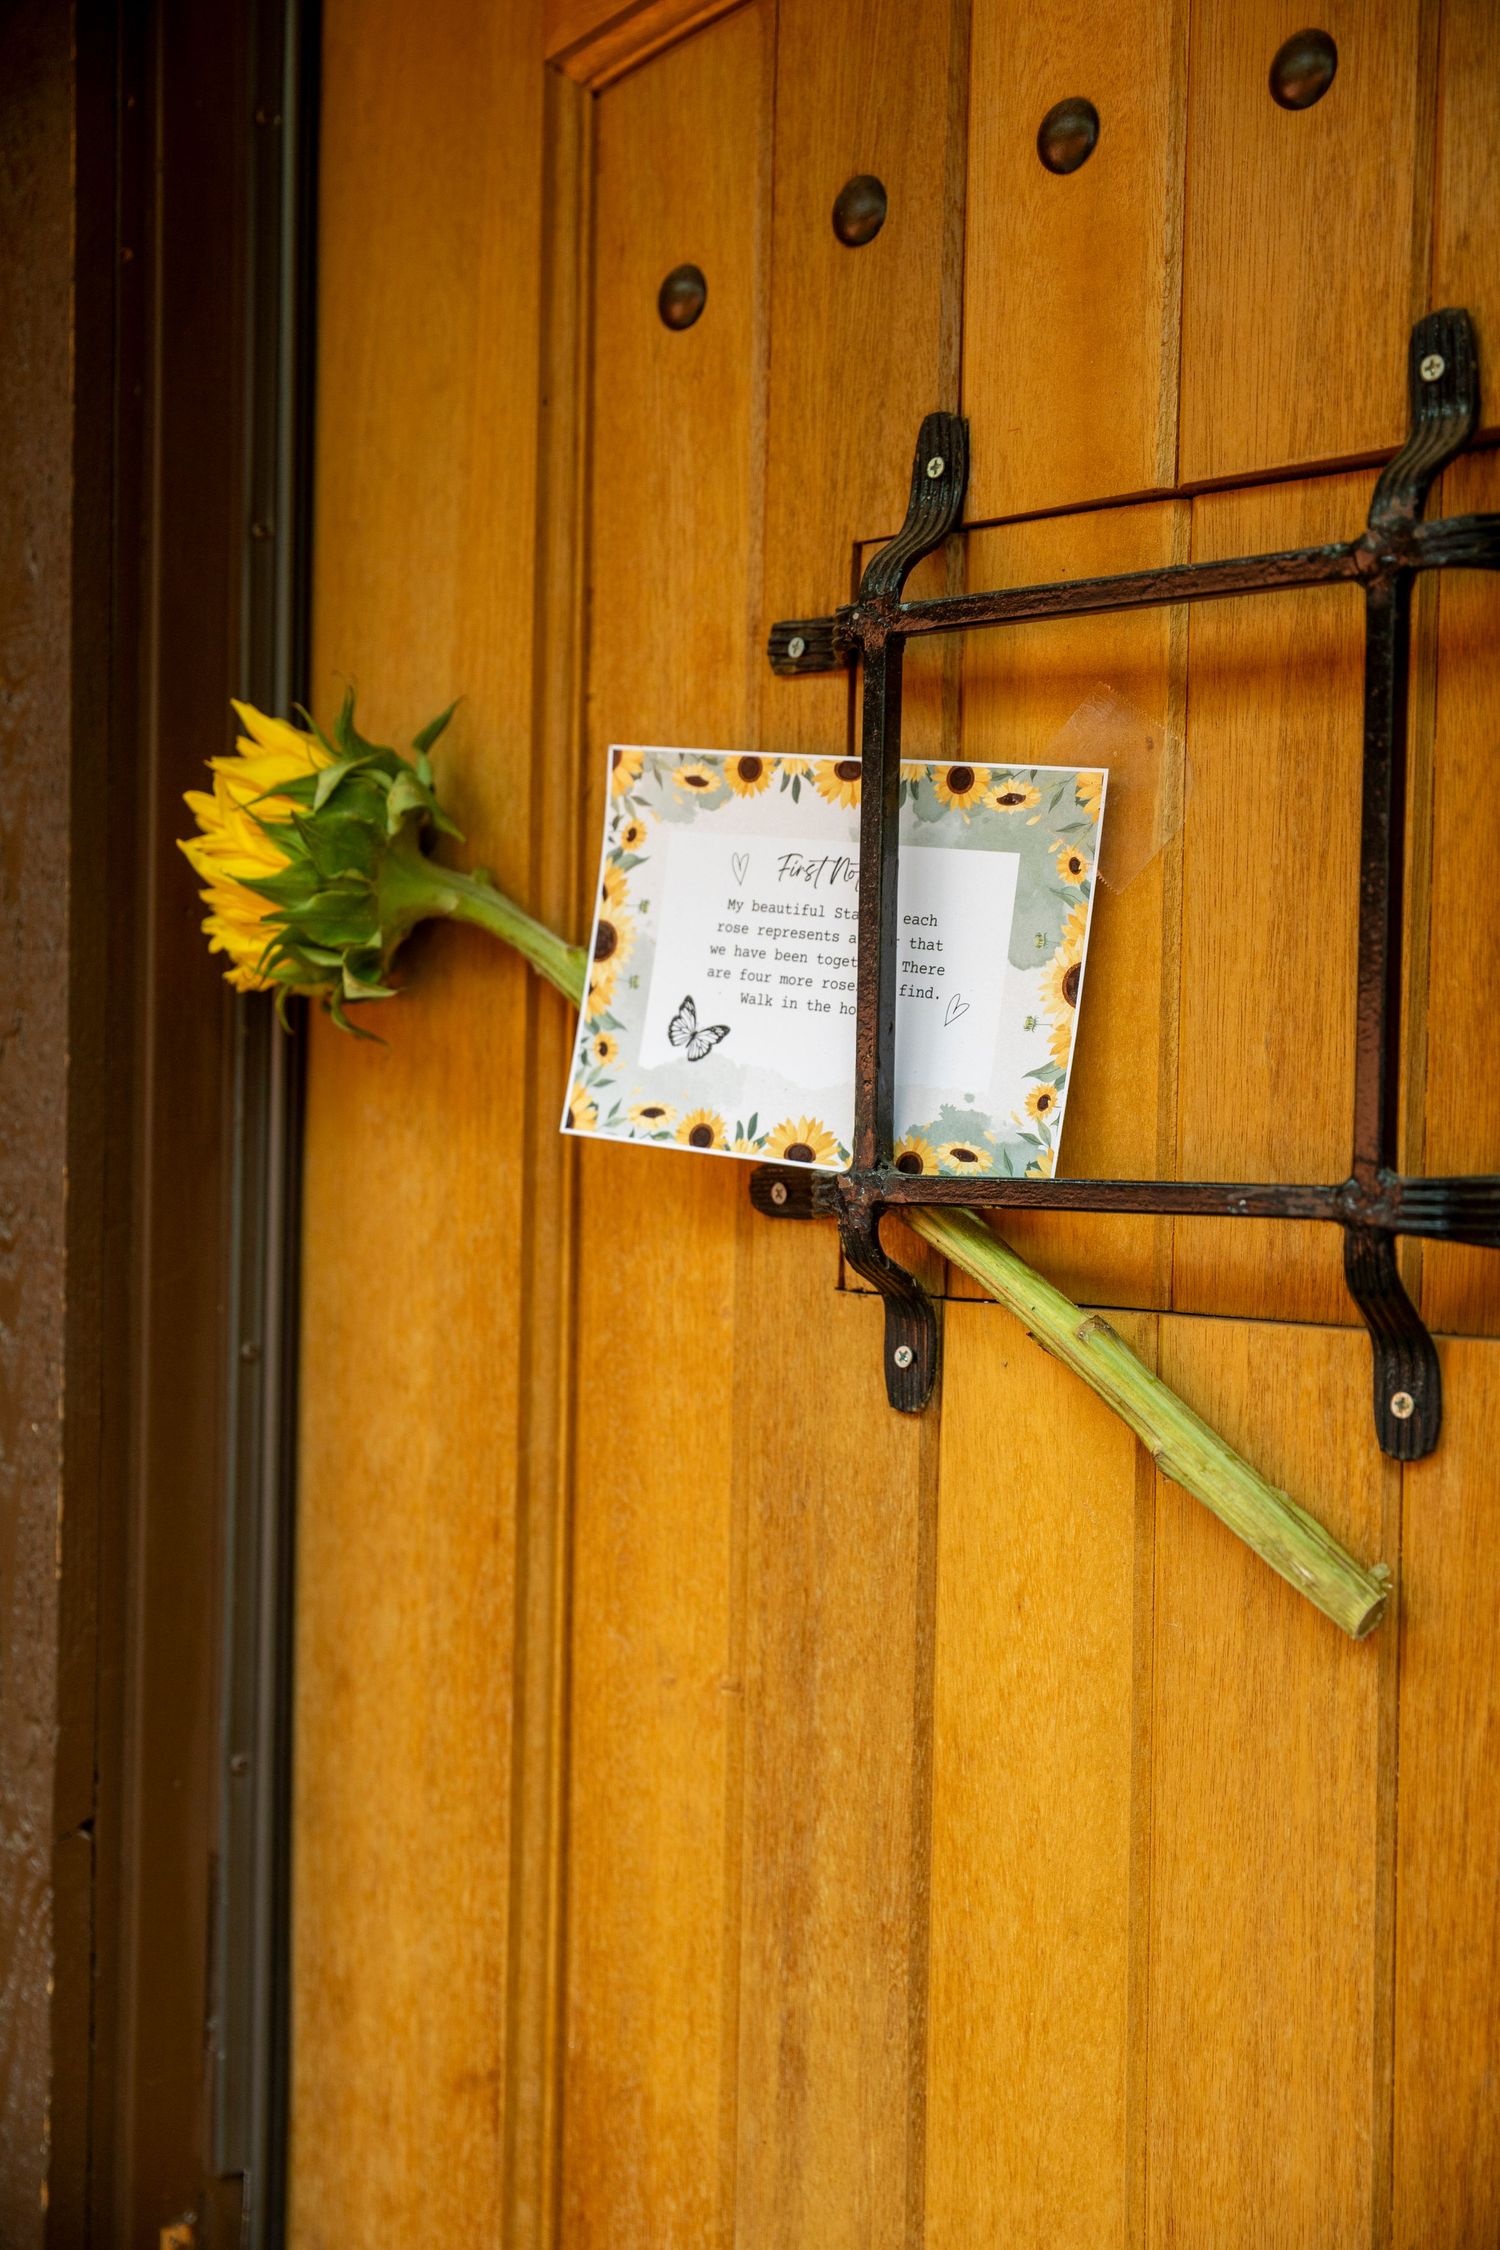 First No
My beautiful Sta each
rose represents a that
we have been toget There
are four more rose find.
Walk in the ho